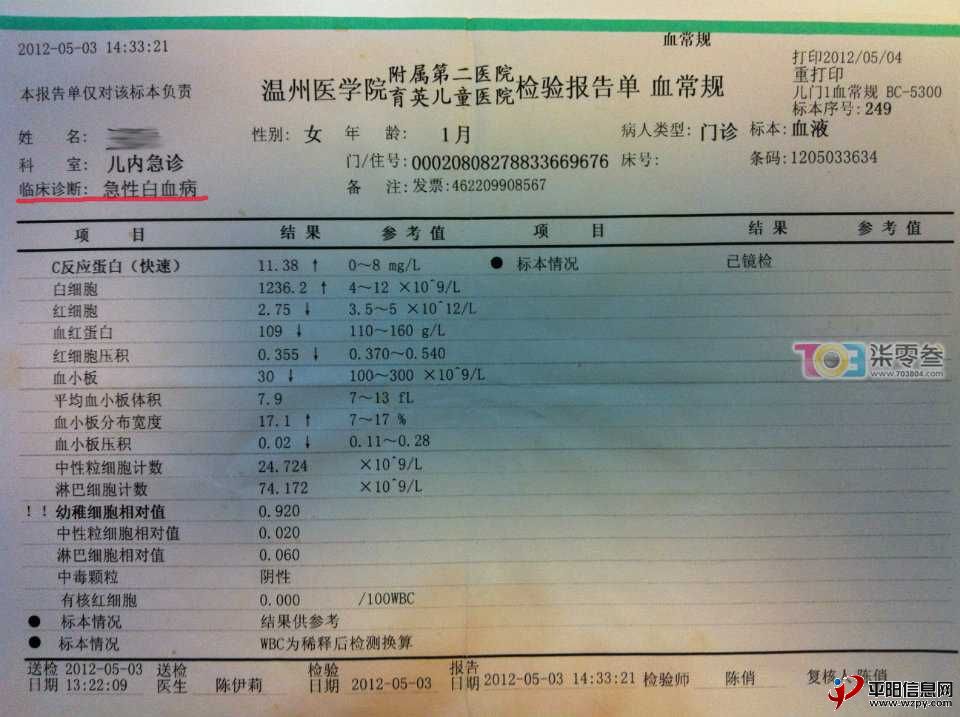 2012-05-03 14:33:21
血常规
打印2012/05/04
重打印
本报告单仅对该标本负责
温州医学院 附属第二医院 育英儿童医院 检验报告单 血常规
儿门1血常规 BC-5300
标本序号: 249
姓 名: 性别: 女 年 龄: 1月 病人类型: 门诊 标本: 血液
科 室: 儿内急诊 门/住号: 00020808278833669676 床号: 条码: 1205033634
临床诊断: 急性白血病 备 注: 发票: 462209908567
项 目 结 果 参 考 值 项 目 结 果 参 考 值
C反应蛋白（快速） 11.38 ↑ 0～8 mg/L ● 标本情况 已镜检
白细胞 1236.2 ↑ 4～12 ×10^9/L
红细胞 2.75 ↓ 3.5～5 ×10^12/L
血红蛋白 109 ↓ 110～160 g/L
红细胞压积 0.355 ↓ 0.370～0.540
血小板 30 ↓ 100～300 ×10^9/L
平均血小板体积 7.9 7～13 fL
血小板分布宽度 17.1 ↑ 7～17 %
血小板压积 0.02 ↓ 0.11～0.28
中性粒细胞计数 24.724 ×10^9/L
淋巴细胞计数 74.172 ×10^9/L
!! 幼稚细胞相对值 0.920
中性粒细胞相对值 0.020
淋巴细胞相对值 0.060
中毒颗粒 阴性
有核红细胞 0.000 /100WBC
● 标本情况 结果供参考
● 标本情况 WBC为稀释后检测换算
送检日期 2012-05-03 13:22:09 送检医生 陈伊莉 检验日期 2012-05-03 报告日期 2012-05-03 14:33:21 检验师 陈俏 复核人 陈俏
703 柒零叁
www.703804.com
平阳信息网
www.wzpy.com